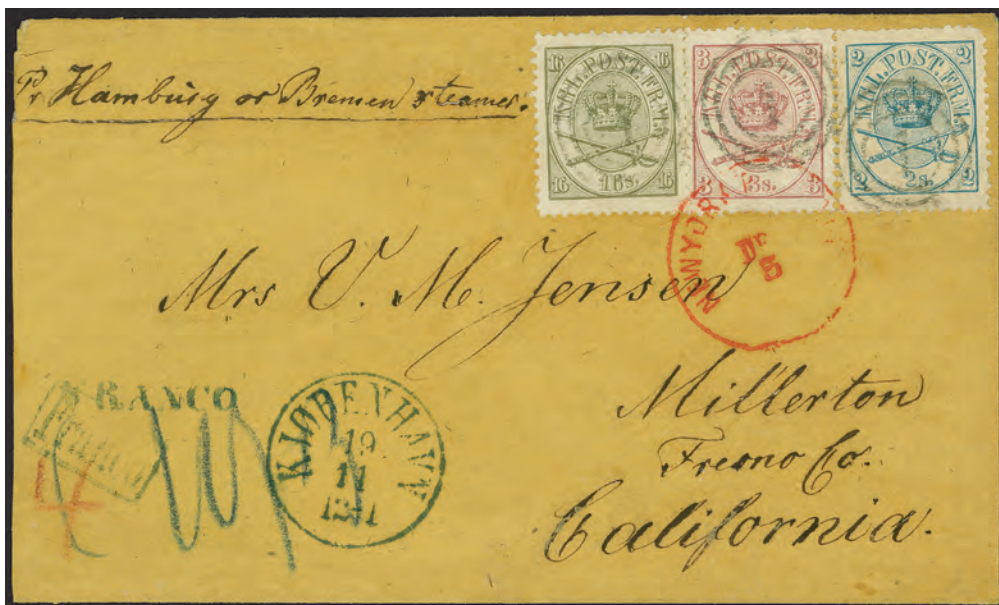 Pr Hamburg or Bremen steamer.
16 16
KGL. POST. FRM.
16 16s. 16
3 3
KGL. POST. FRM.
3 3s. 3
2 2
KGL. POST. FRM.
2 2s. 2
NEW YORK
5
Mrs V. M. Jensen
Millerton
Fresno Co.
California.
FRANCO
Franco
4
KJØBENHAVN
19
11